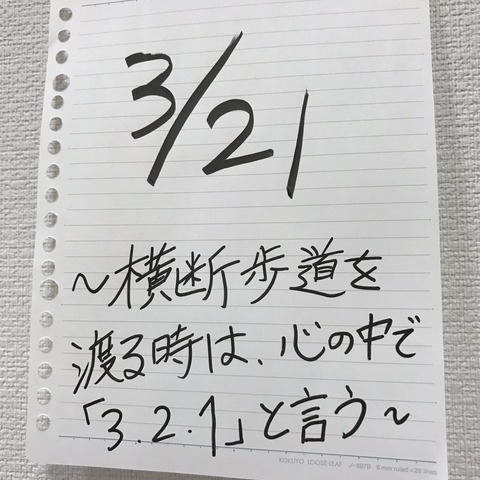 3/21
~横断歩道を
渡る時は、心の中で
「3.2.1」と言う~
KOKUYO LOOSE-LEAF ノ-807B 6 mm ruled × 28 lines